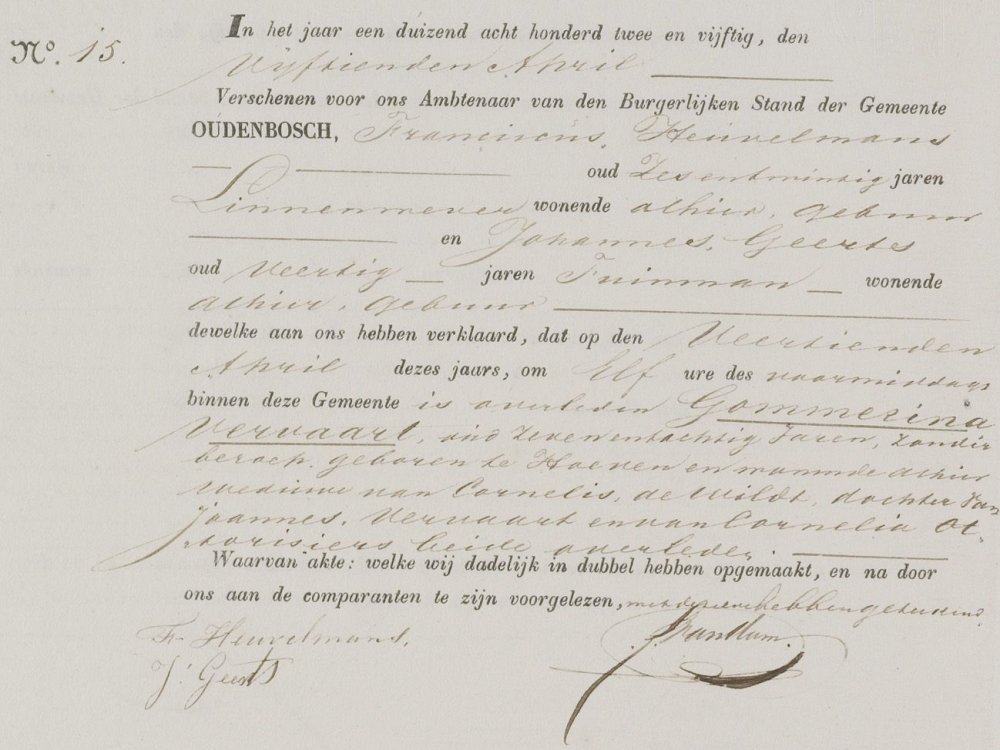 No. 15.
In het jaar een duizend acht honderd twee en vijftig, den
Vijftienden April
Verschenen voor ons Ambtenaar van den Burgerlijken Stand der Gemeente
OUDENBOSCH, Franciscus, Heuvelmans
oud Zesentwintig jaren
Linnenwever wonende alhier, gebuur
en Johannes, Geerts
oud Veertig jaren Tuinman wonende
alhier, gebuur
dewelke aan ons hebben verklaard, dat op den Veertienden
April dezes jaars, om Elf ure des voormiddags
binnen deze Gemeente is overleden Gommerina
Vervaart, oud zevenentachtig Jaren, zonder
beroep, geboren te Hoeven en woonende alhier
weduwe van Cornelis, de Wildt, dochter van
Joannes, Vervaart en van Cornelia
beide overleden.
Waarvan akte: welke wij dadelijk in dubbel hebben opgemaakt, en na door
ons aan de comparanten te zijn voorgelezen, met dezelve hebben geteekend.
Fr Heuvelmans,
J: Geerts